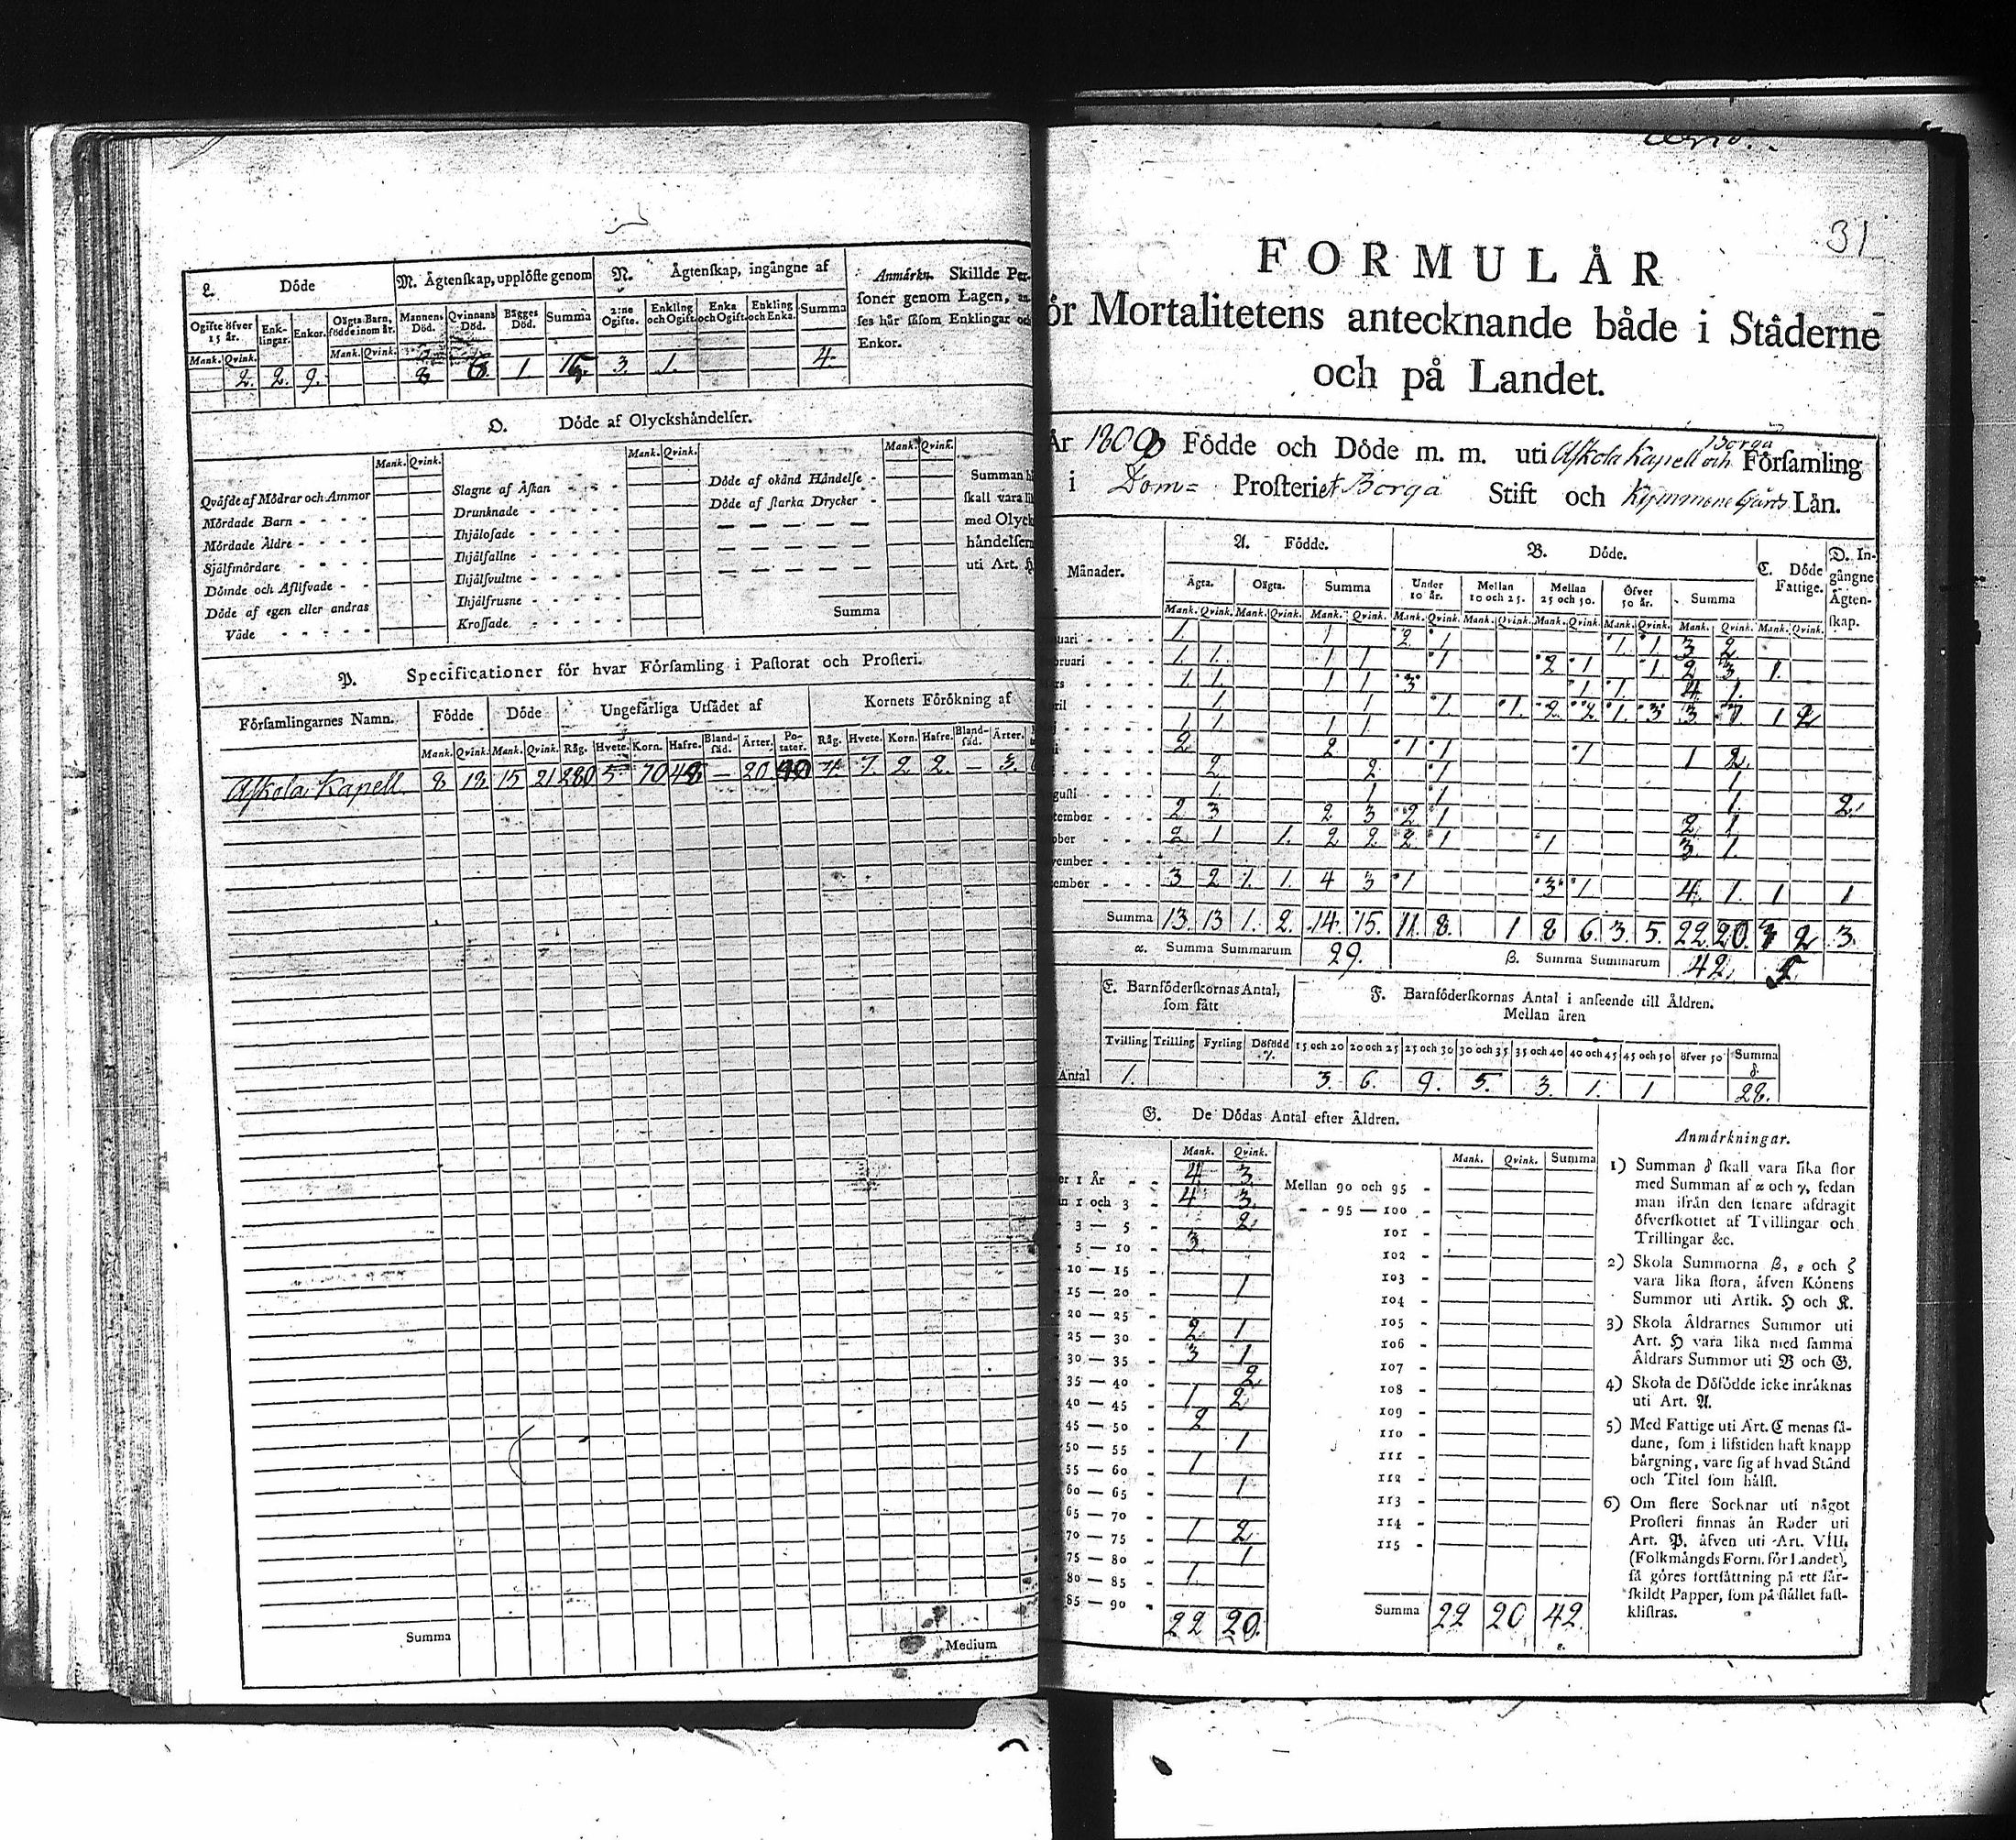 L. Döde
M. Ägtenskap, upplöste genom
N. Ägtenskap, ingångne af
Anmärkn. Skillde Per-
soner genom Lagen, an-
ses här såsom Enklingar och
Enkor.
Ogifte öfver 15 år. Enk-lingar. Enkor. Oägta Barn, födde inom år. Mannens Död. Qvinnans Död. Bägges Död. Summa 2:ne Ogifte. Enkling och Ogift Enka och Ogift Enkling och Enka. Summa
Mank. Qvink. Mank. Qvink.
2. 2. 9. 8 1. 3. 1. 4.
O. Döde af Olyckshändelser.
Mank. Qvink. Mank. Qvink. Mank. Qvink.
Qväfde af Mödrar och Ammor
Mördade Barn
Mördade Äldre
Självmördare
Dömde och Aflifvade
Döde af egen eller andras
Våde
Slagne af Åskan
Drunknade
Ihjälosade
Ihjälfallne
Ihjälsvultne
Ihjälfrusne
Krossade
Döde af okänd Händelse
Döde af starka Drycker
Summa
Summan h
skall vara lik
med Olyck
händelsern
uti Art. H
P. Specificationer för hvar Församling i Pastorat och Prosteri.
Församlingarnes Namn. Födde Döde Ungefärliga Utsädet af Kornets Förökning af
Mank. Qvink. Mank. Qvink. Råg. Hvete. Korn. Hafre. Bland-säd. Ärter. Po-tater. Råg. Hvete. Korn. Hafre. Bland-säd. Ärter.
Askola Kapell. 8 13 15 21 280 5 70 48 — 20 40 4 7. 2 2. — 3.
Summa
Medium
31
FORMULÄR
ör Mortalitetens antecknande både i Städerne
och på Landet.
År 1809 Födde och Döde m. m. uti Askola Kapell och Borgå Församling
i Dom= Prosteriet Borgå Stift och Kymmene Gårds Län.
Månader. A. Födde. B. Döde. C. Döde Fattige. D. In-gångne Ägten-skap.
Ägta. Oägta. Summa Under 10 år. Mellan 10 och 25. Mellan 25 och 50. Öfver 50 år. Summa
Mank. Qvink. Mank. Qvink. Mank. Qvink. Mank. Qvink. Mank. Qvink. Mank. Qvink. Mank. Qvink. Mank. Qvink. Mank. Qvink.
uari 1. 1 2 1 1 1 3 2
bruari 1 1. 1 1 1 2 1 1 2 3 1.
rs 1. 1 1 1 3 1 1. 4 1.
ril 1 1 1. 1. 2 2 1. 3 3 7 1 2
1 1 1 1.
2 2 1 1 1 1 2
2. 2 1 1
gusti 1. 1 1 1. 2.
tember 2 3 2 3 2 1 2 1
ober 2 1 1. 2 2 2. 1 1 3. 1.
vember
ember 3 2 1. 1. 4 3 1 3 1 4. 1. 1 1
Summa 13. 13 1. 2. 14. 15. 11. 8. 1 8 6. 3. 5. 22. 20. 3 2 3.
α. Summa Summarum 29.
β. Summa Summarum 42. 5
E. Barnföderskornas Antal,
som fått
F. Barnföderskornas Antal i anseende till Åldren.
Mellan åren
Tvilling Trilling Fyrling Dödfödd γ. 15 och 20 20 och 25 25 och 30 30 och 35 35 och 40 40 och 45 45 och 50 öfver 50 Summa δ.
Antal 1. 3. 6. 9. 5. 3. 1. 1 28.
G. De Dödas Antal efter Åldren.
Mank. Qvink. Mank. Qvink. Summa
er 1 År 4. 3
n 1 och 3 4 3.
3 — 5 2.
5 — 10 3.
10 — 15
15 — 20 1
20 — 25
25 — 30 2 1
30 — 35 3 1
35 — 40 2
40 — 45 1 2
45 — 50 2
50 — 55 1
55 — 60 1
60 — 65 1
65 — 70
70 — 75 1 2
75 — 80 1
80 — 85 1.
85 — 90
22 20.
Mellan 90 och 95
95 — 100
101
102
103
104
105
106
107
108
109
110
111
112
113
114
115
Summa 22 20 42.
ε.
Anmärkningar.
1) Summan δ skall vara lika stor
med Summan af α och γ, sedan
man ifrån den senare afdragit
öfverskottet af Tvillingar och
Trillingar &c.
2) Skola Summorna β, ε och ζ
vara lika stora, äfven Könens
Summor uti Artik. H och K.
3) Skola Åldrarnes Summor uti
Art. H vara lika med samma
Åldrars Summor uti B och G.
4) Skola de Dödfödde icke inräknas
uti Art. A.
5) Med Fattige uti Art. C menas så-
dane, som i lifstiden haft knapp
bärgning, vare sig af hvad Stånd
och Titel som hälst.
6) Om flere Socknar uti något
Prosteri finnas än Rader uti
Art. P. äfven uti Art. VIII.
(Folkmängds Form. för Landet),
så göres fortsättning på ett sär-
skildt Papper, som på stället fast-
klistras.